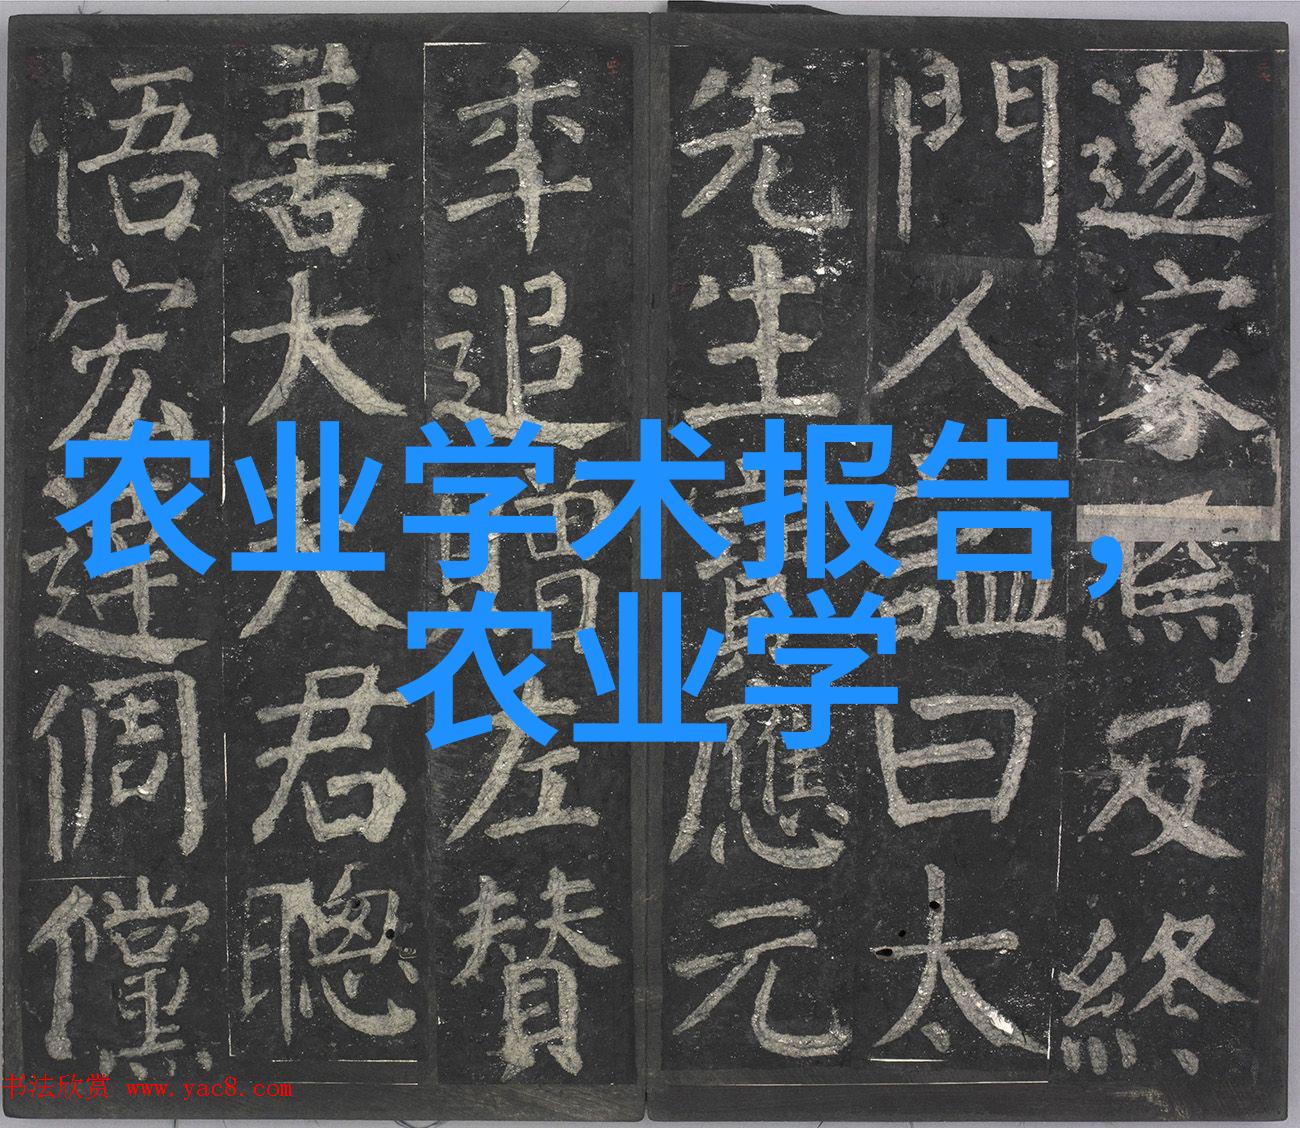 遂家焉及終
門人諡曰太
先生寶應元
年追贈左贊
善大夫君聰
悟宏達倜儻
农业学术报告,
农业学
书法欣赏 www.yac8.com